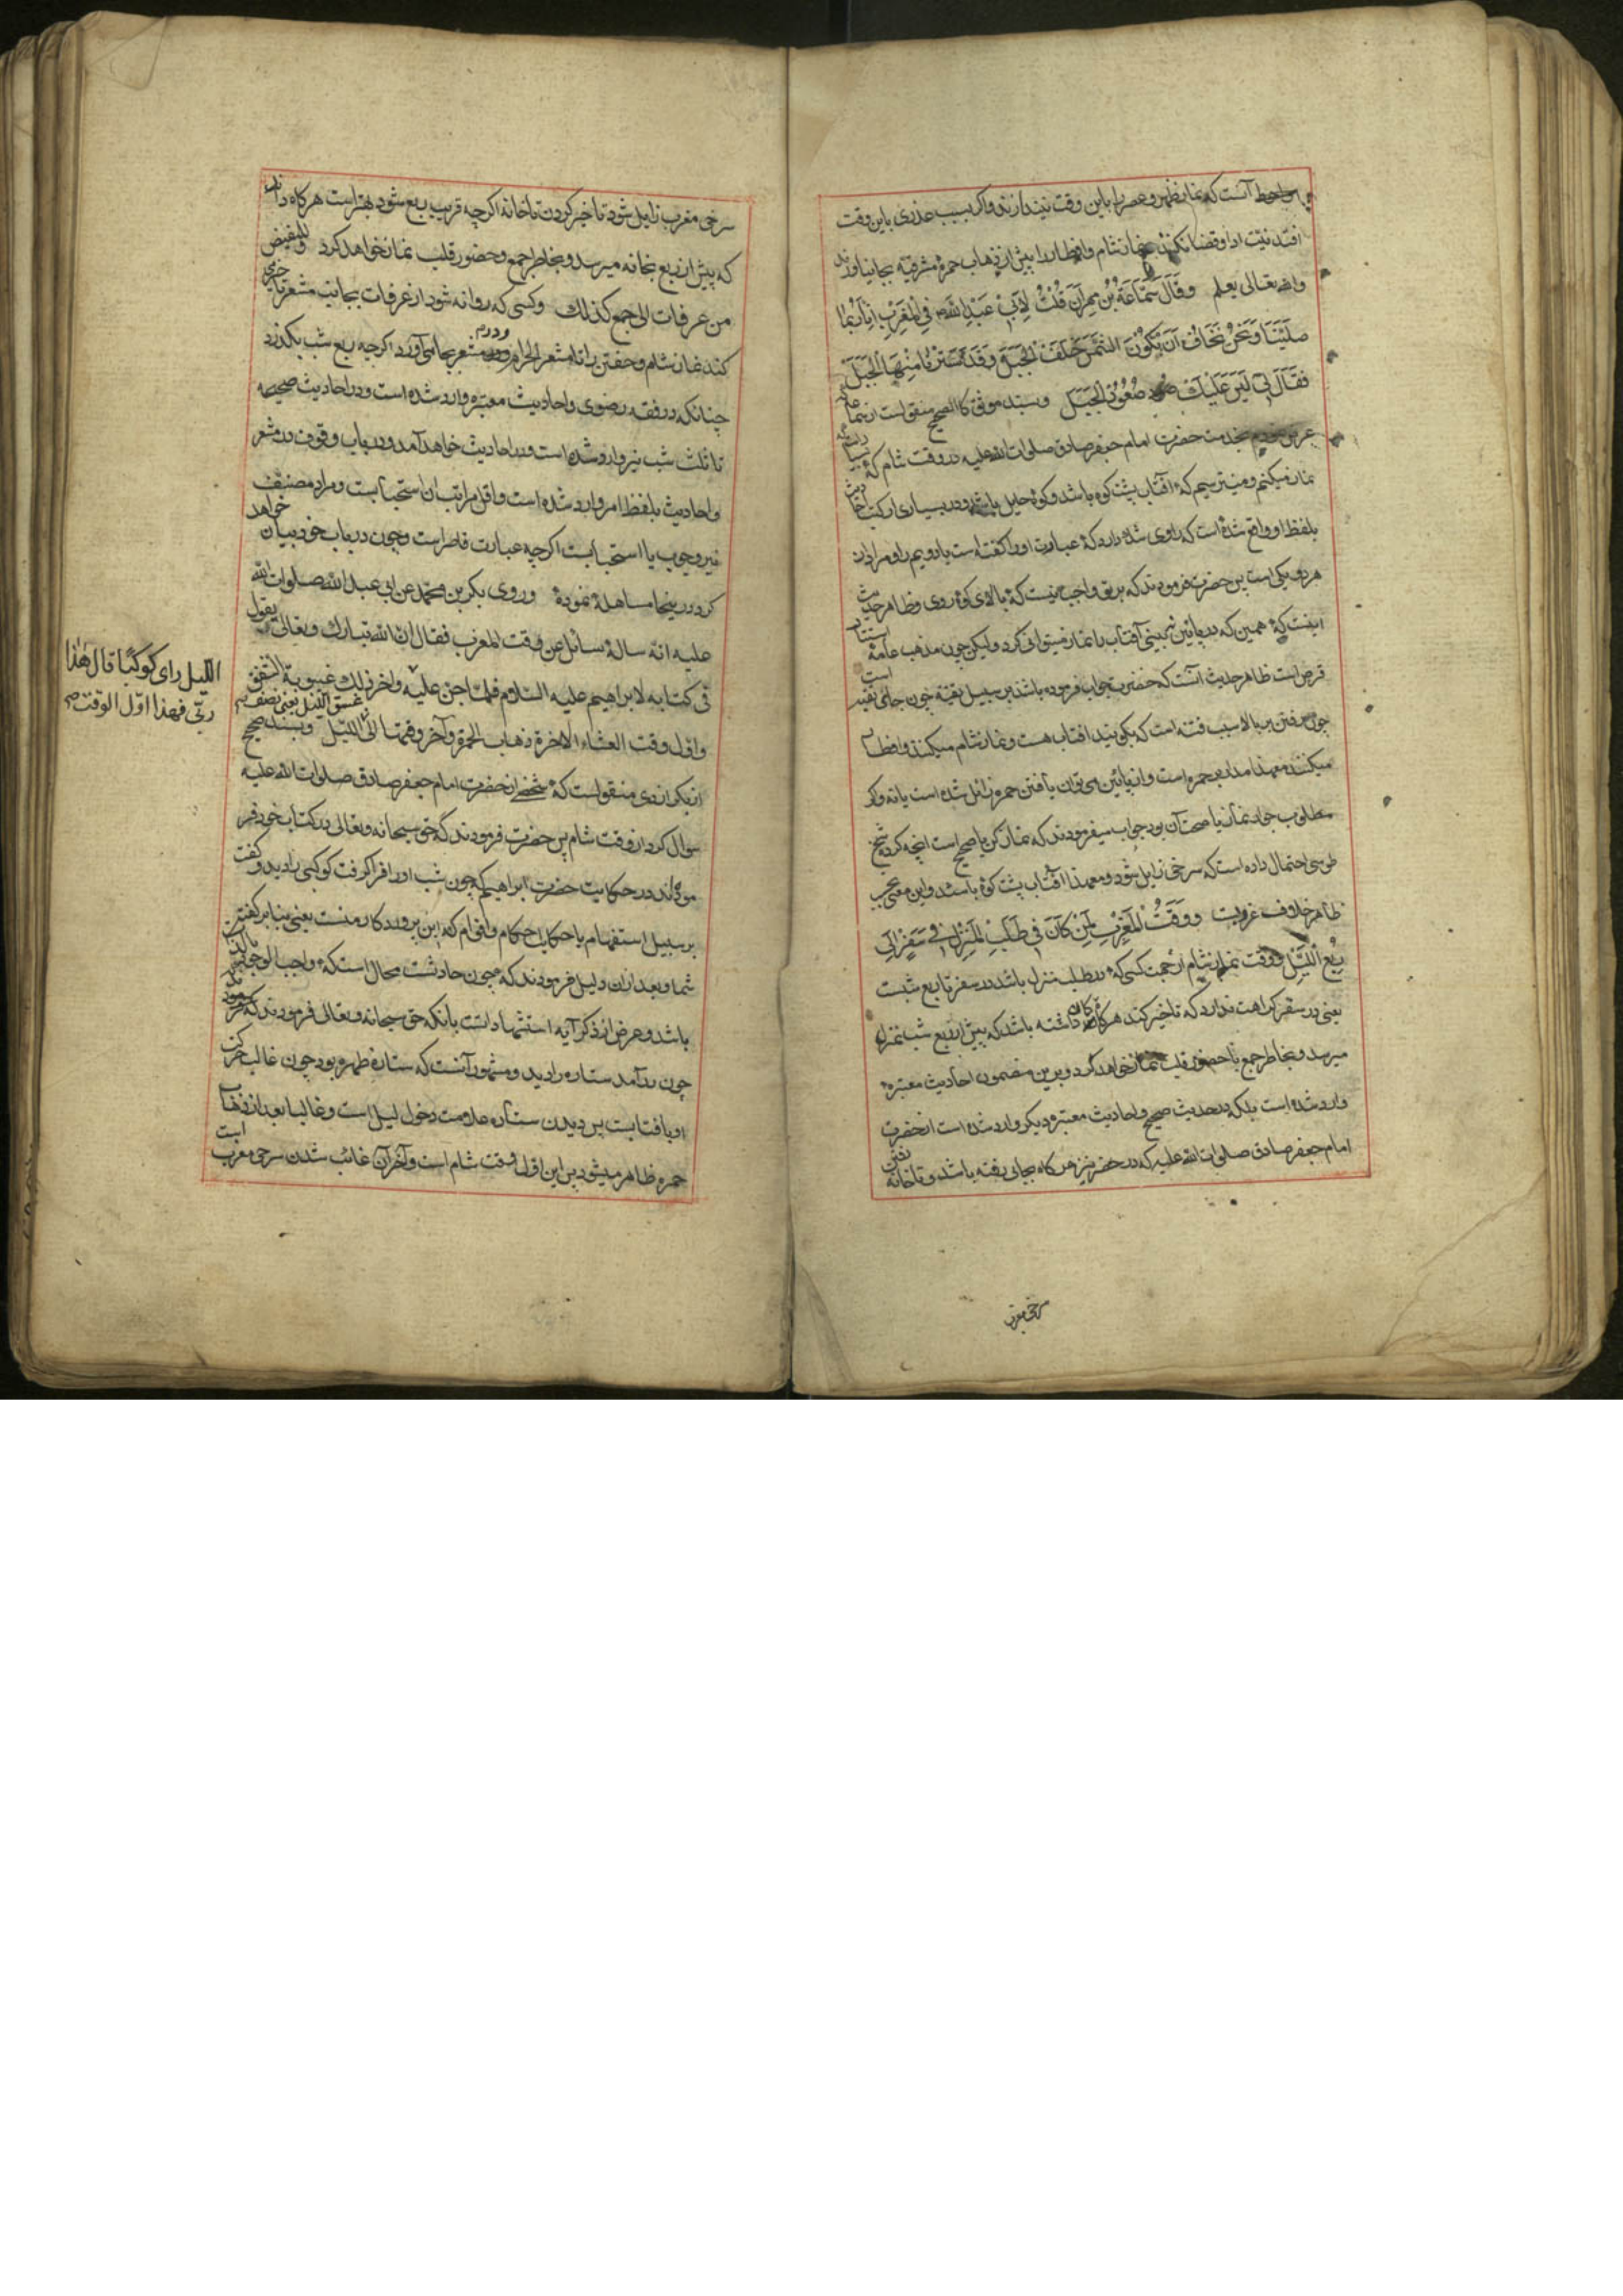 احوط آنست که نماز ظهر و عصر را باین وقت نیندازند و اگر بسبب عذری باین وقت
افتد نیت ادا و قضا نکنند و نماز شام و افطار را پیش از ذهاب حمرهٔ مشرقیه بجا نیاورند
والله تعالی یعلم وَقَالَ سَمَاعَةُ بْنُ مِهْرَانَ قُلْتُ لِأَبِیْ عَبْدِ اللهِ فِی الْمَغْرِبِ اِنَّا رُبَّمَا
صَلَّیْنَا وَنَحْنُ نَخَافُ اَنْ تَکُوْنَ الشَّمْسُ خَلْفَ الْجَبَلِ وَقَدْ سَتَرَنَا مِنْهَا الْجَبَلُ
فَقَالَ لِی لَیْسَ عَلَیْكَ صُعُوْدُ الْجَبَلِ و بسند موثق کالصحیح منقولست از سماعه
بخدمت حضرت امام جعفر صادق صلوات الله علیه در وقت شام که
نماز میکنیم و میترسیم که آفتاب پشت کوه باشد و کوه حایل باشد و در بسیاری از کتب حدیث
بلفظ او واقع شده است که راوی شک دارد که عبارت او را گفته است یا دویم را و مراد از
هر دو یکی است پس حضرت فرمودند که بر تو واجب نیست که بالای کوه روی و ظاهر حدیث
اینست که همین که در پائین نبینی آفتاب را نماز میتوانی کرد و لیکن چون مذهب عامه استتار
قرص است ظاهر حدیث آنست که حضرت جواب فرموده باشند بر سبیل تقیه چون جای تقیه است
چون رفتن بر بالا سبب فتنه است که بگویند افتاب هست و نماز شام میکنند و افطار
میکنند معهذا مدار بر حمره است و از پائین می توان یافتن حمره زائل شده است یا نه و اگر
مطلوب جواز نماز یا صحت آن بود جواب میفرمودند که نماز کن یا صحیح است اینچه کردی شیخ
طوسی احتمال داده است که سرخی زایل شود و معهذا آفتاب پشت کوه باشد و این معنی بحسب
ظاهر خلاف غروبست وَوَقْتُ الْمَغْرِبِ لِمَنْ کَانَ فِی طَلَبِ الْمَنْزِلِ فِی سَفَرٍ اِلَی
رُبْعِ الَّلیْلِ و وقت نماز شام از جهت کسی که در طلب منزل باشد در سفر تا ربع شبست
یعنی در سفر کراهت ندارد که تاخیر کند هرگاه گمان داشته باشد که پیش از ربع شب بمنزل
میرسد و بخاطر جمع با حضور قلب نماز خواهد کرد و برین مضمون احادیث معتبره
وارد شده است بلکه در حدیث صحیح و احادیث معتبره دیگر وارد شده است از حضرت
امام جعفر صادق صلوات الله علیه که در حضر نیز هر گاه بجائی رفته باشد و تا خانه رفتن
سرخی مغرب
سرخی مغرب زایل شود تاخیر کردن تا خانه اگر چه قریب بربع شود بهتر است هر گاه داند
که پیش از ربع بخانه میرسد و بخاطر جمع و حضور قلب نماز خواهد کرد وللمفیض
من عرفات الی جمع کذلك و کسی که روانه شود از عرفات بجانب مشعر تاخیر می
کند نماز شام و خفتن را تا مشعر الحرام و در مشعر بجا می آورد اگر چه ربع شب بگذرد
چنانکه در فقه رضوی و احادیث معتبره وارد شده است و در احادیث صحیحه
تا ثلث شب نیز وارد شده است و در احادیث خواهد آمد در باب وقوف در مشعر
و احادیث بلفظ امر وارد شده است و اقل مراتب آن استحبابست و مراد مصنف
نیز وجوب یا استحبابست اگر چه عبارت قاصر است و چون در باب خود بیان خواهد
کرد در ینجا مساهله نموده و روی بکر بن محمد عن ابی عبد الله صلوات الله
علیه انه ساله سائل عن وقت المغرب فقال ان الله تبارك و تعالی یقول
فی کتابه لابراهیم علیه السلام فلما جن علیه و اخر ذلك غیبوبة الشفق
و اول وقت العشاء الاخرة ذهاب الحمرة و آخر وقتها الی غسق اللیل یعنی نصف اللیل و بسند صحیح
از بکر ازدی منقولست که شخصی از حضرت امام جعفر صادق صلوات الله علیه
سوال کرد از وقت شام پس حضرت فرمودند که حق سبحانه و تعالی در کتاب خود فر
موده اند در حکایت حضرت ابراهیم که چون شب او را فرا گرفت کوکبی را دید و گفت
بر سبیل استفهام یا حکایت احکام و افخام که این پروردکار منست یعنی بنا بر گفته
شما و بعد ازان دلیل فرمودند که چون حادثست محال است که واجب الوجود
باشد و غرض از ذکر آیه استشهاد است بانکه حق سبحانه و تعالی فرمودند که
چون در آمد ستاره را دید و مشهور آنست که ستاره زهره بود چون غالب
او با فتابست پس دیدن ستاره علامت دخول لیل است و غالبا بعد از ذهاب
حمره ظاهر میشود پس این اول وقت شام است و آخر آن غائب شدن سرخی مغرب است
اللیل رای کوکبًا قال هٰذا
ربّی فهذا اوّل الوقت صح